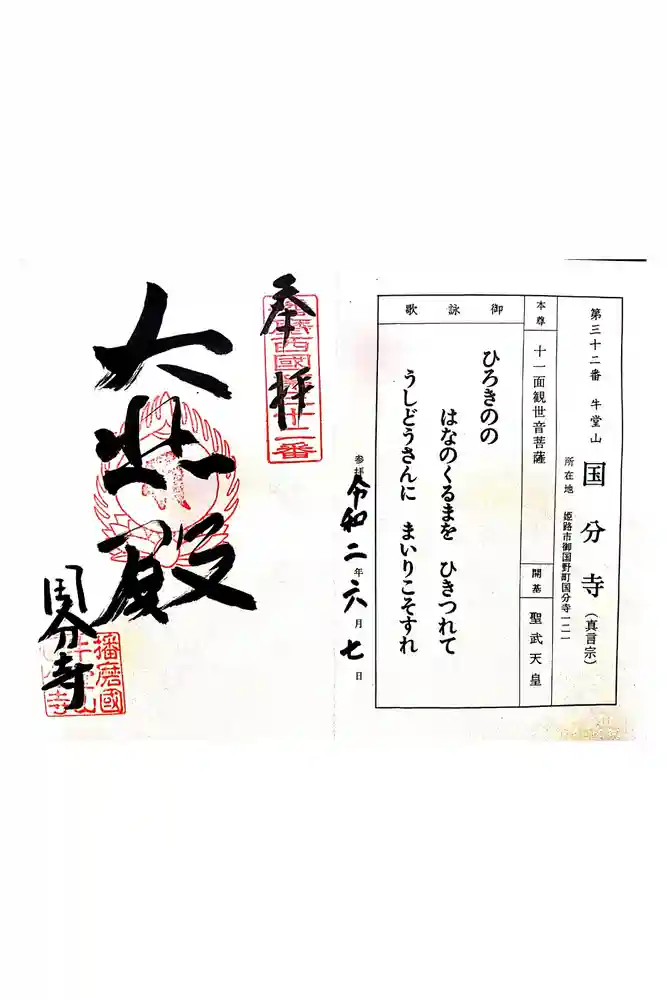 第三十二番 牛堂山 国分寺 (真言宗)
所在地 姫路市御国野町国分寺一二一
本尊 十一面観世音菩薩
開基 聖武天皇
御詠歌
ひろきのの
はなのくるまを ひきつれて
うしどうさんに まいりこそすれ
参拝 令和二年六月七日
奉拝
播磨西國第三十二番
大悲殿
国分寺
播磨國
牛堂山